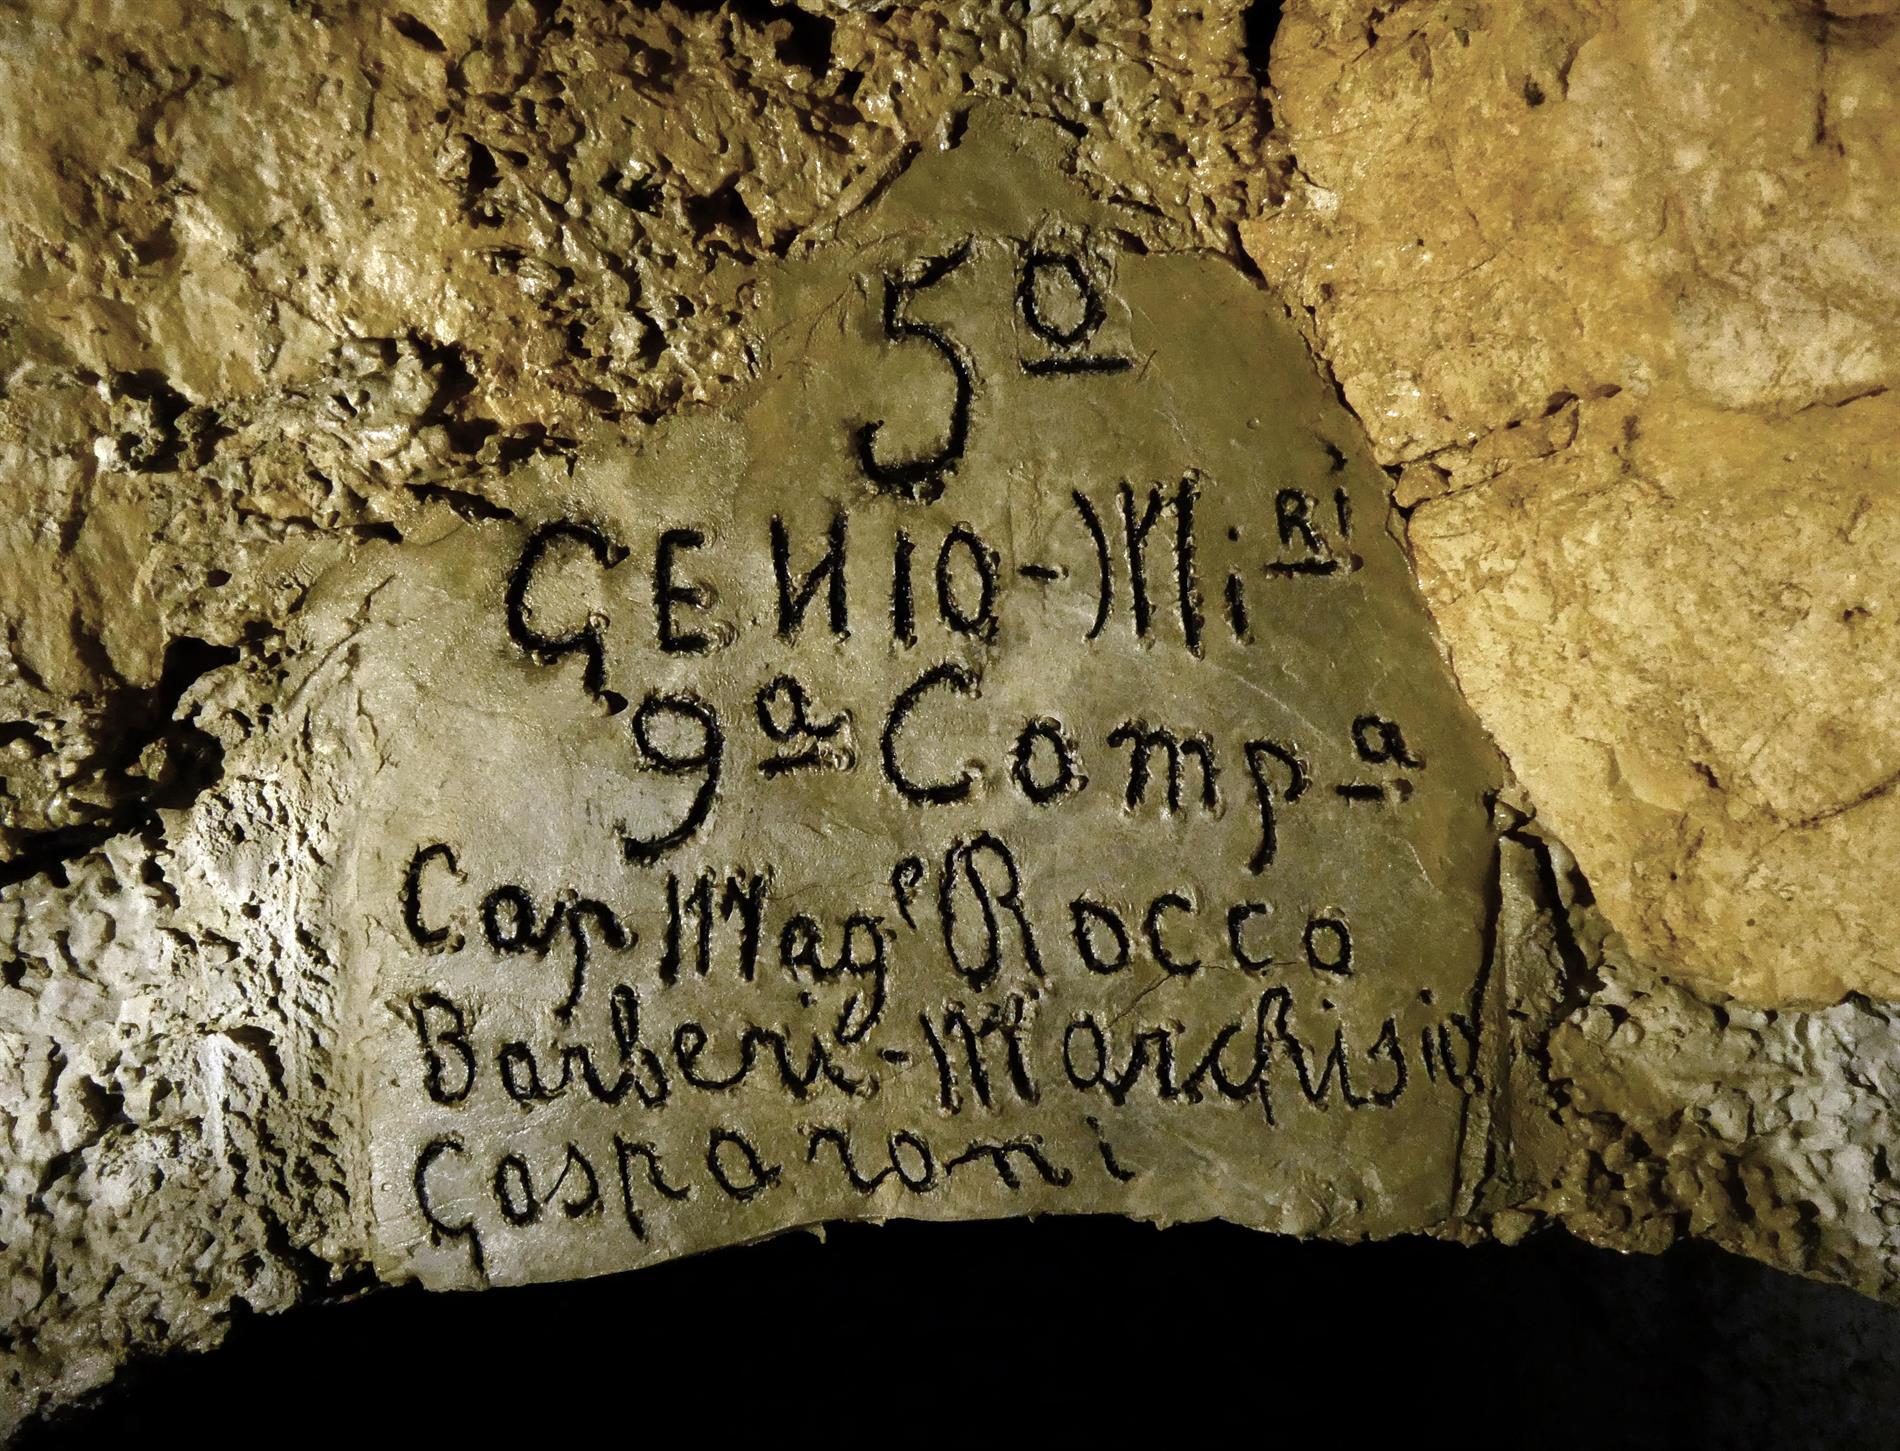 5º
GENIO-Miᴿᴵ
9ª Compª
Cap Magᵉ Rocco
Barberi-Marchisio
Gasparoni